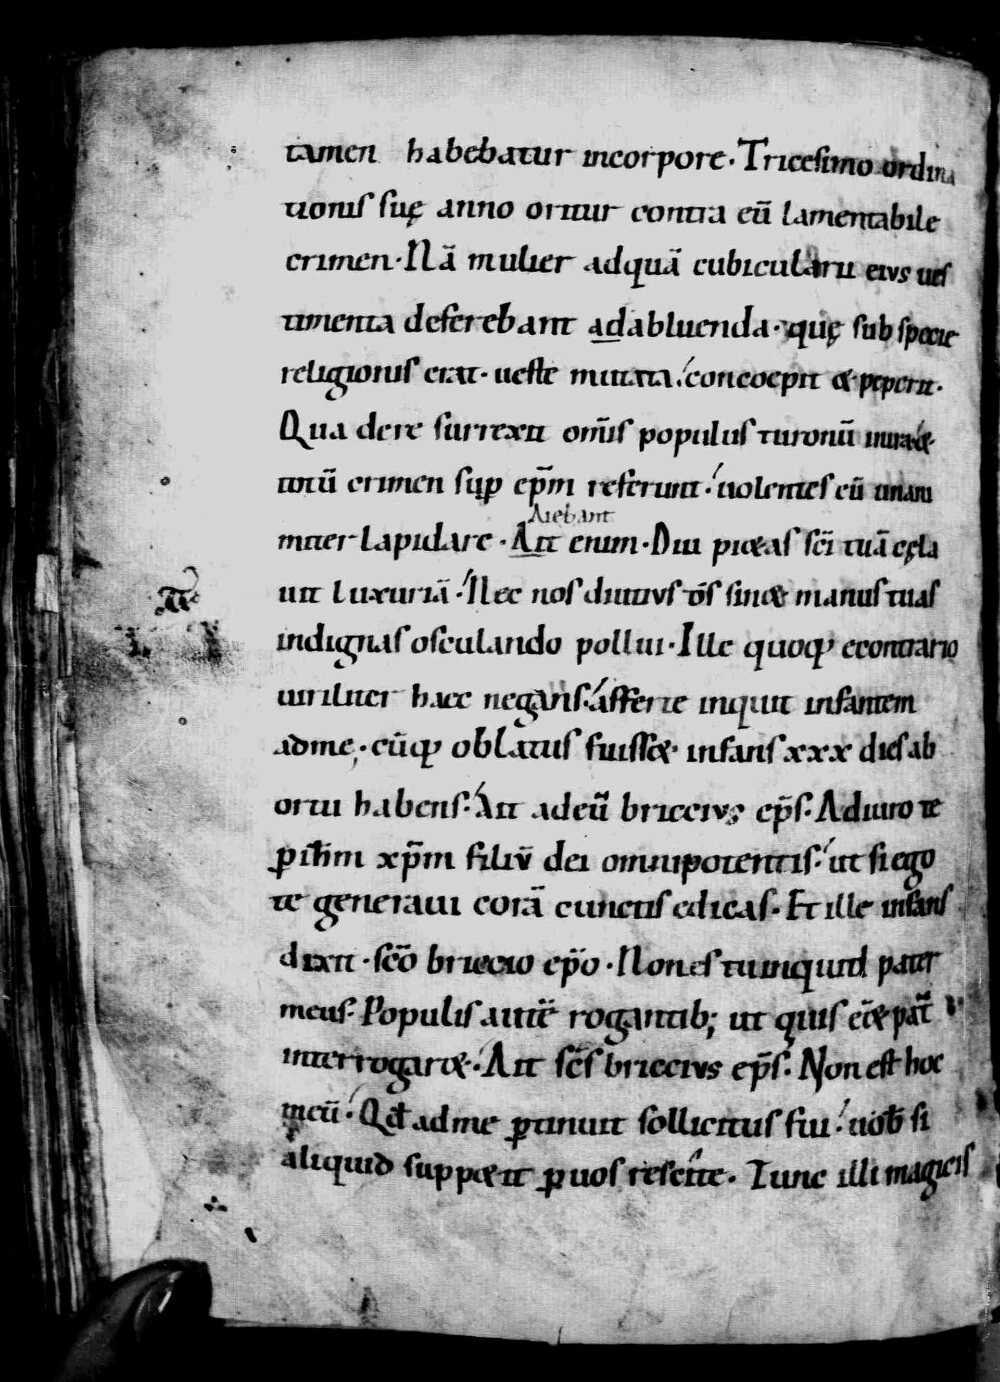 tamen habebatur incorpore. Tricesimo ordina
tionis suę anno oritur contra eū lamentabile
crimen. Nā mulier adquā cubicularii eius ues
timenta deferebant adabluenda. quę sub specie
religionis erat. ueste mutata. concoepit & peperit.
Qua dere surrexit om̄is populus turonū iniraq&.
totū crimen sup ep̄m referunt. uolentes eū unani
Aiebant
miter lapidare. Ait enim. Diu pi&as sc̄i tuā cęla
uit luxuriā. Nec nos diuinus d̄s sin& manus tuas
indignas osculando pollui. Ille quoq; econtrario
uiriliter haec negans. afferte inquit infantem
adme. cūq; oblatus fuiss& infans xxx dies ab
ortu habens. Ait adeū briccius ep̄s. Adiuro te
p ih̄m xp̄m filiū dei omnipotentis. ut si ego
te generaui corā cunctis edicas. Et ille infans
dixit. sc̄o briccio ep̄o. Non es tu inquid pater
meus. Populis autē rogantib; ut quis eē& pat̄
interrogar&. Ait sc̄s briccius ep̄s. Non est hoc
meū. Qđ adme ptinuit sollicitus fui. uob̄ si
aliquid supp&it p uos rescite. Tunc illi magicis